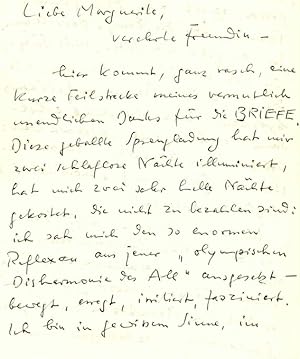 Liebe Marguerite,
verehrte Freundin –
hier kommt, ganz rasch, eine
kurze Teilstrecke meines vermutlich
unendlichen Danks für die BRIEFE.
Diese geballte Sprengladung hat mir
zwei schlaflose Nächte illuminiert,
hat mich zwei sehr helle Nächte
gekostet, die nicht zu bezahlen sind:
ich sah mich den so enormen
Reflexen aus jener „olympischen
Disharmonie des All" ausgesetzt –
bewegt, erregt, irritiert, fasziniert.
Ich bin in gewissem Sinne, im